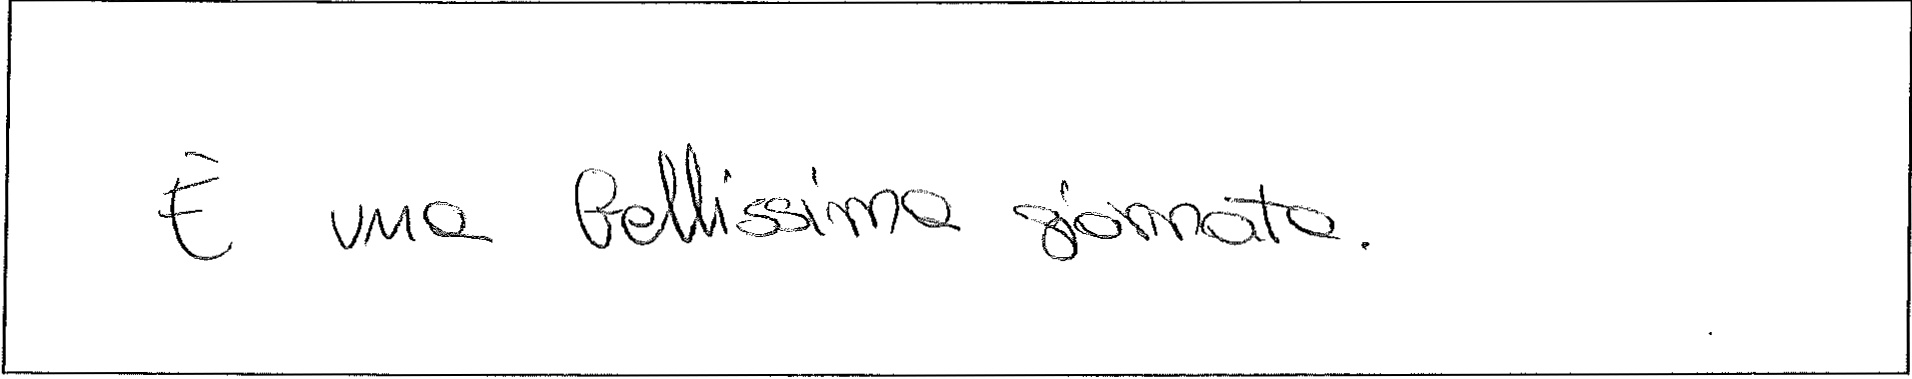 È una bellissima giornata.